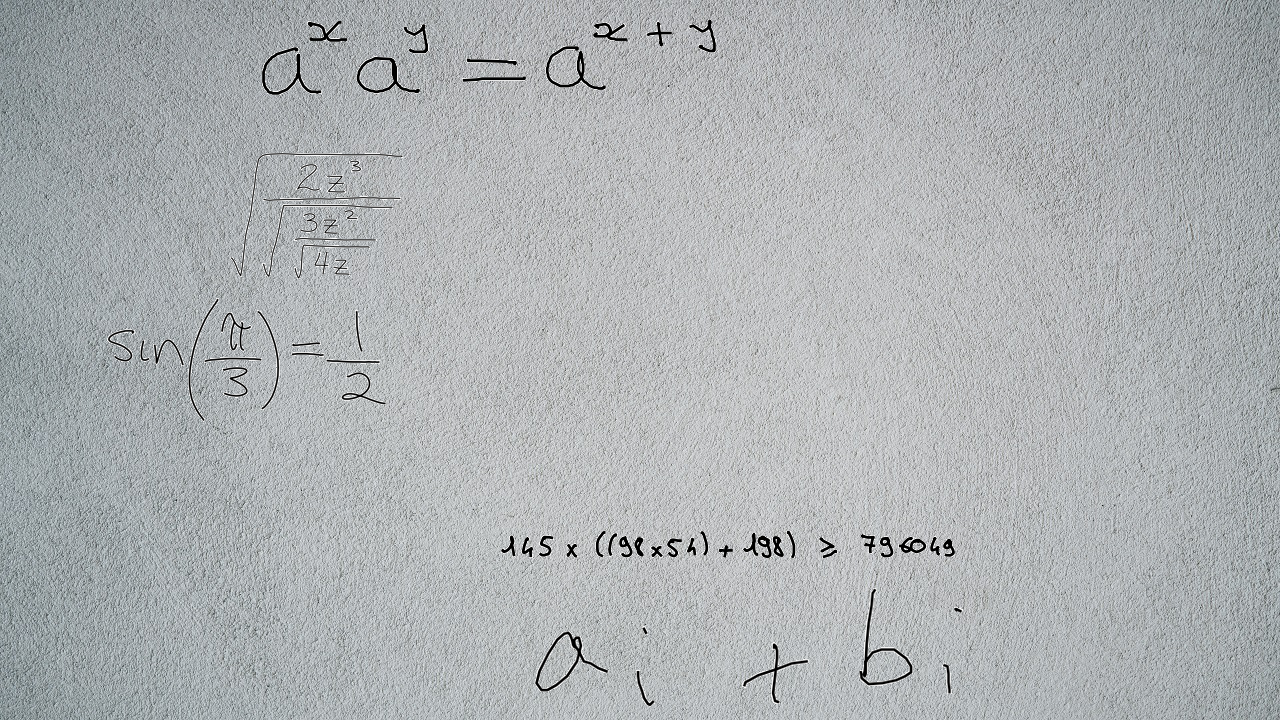 a^x a^y = a^{x + y}
\sqrt{\frac{2z^3}{\sqrt{\frac{3z^2}{\sqrt{4z}}}}}
sin(\frac{π}{3}) = \frac{1}{2}
145 × ((98×54) + 198) ≥ 796049
a_i + b_i